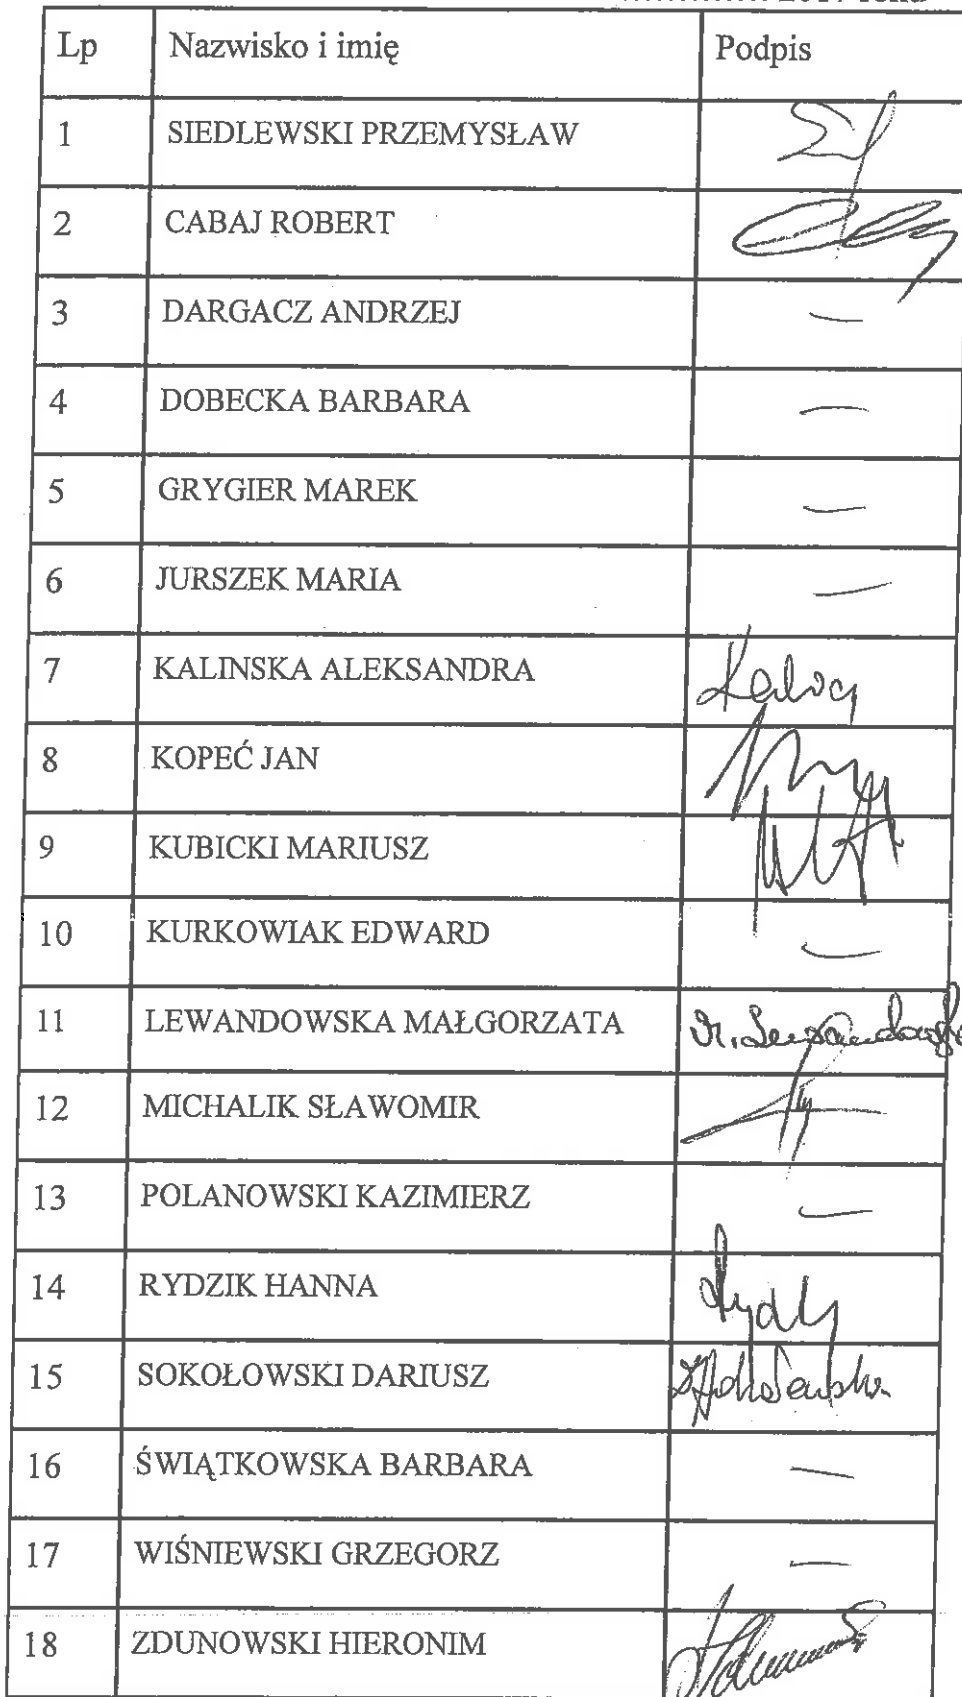 Lp Nazwisko i imię Podpis
1 SIEDLEWSKI PRZEMYSŁAW
2 CABAJ ROBERT
3 DARGACZ ANDRZEJ —
4 DOBECKA BARBARA —
5 GRYGIER MAREK —
6 JURSZEK MARIA —
7 KALINSKA ALEKSANDRA
8 KOPEĆ JAN
9 KUBICKI MARIUSZ
10 KURKOWIAK EDWARD —
11 LEWANDOWSKA MAŁGORZATA M. Lewandowska
12 MICHALIK SŁAWOMIR
13 POLANOWSKI KAZIMIERZ —
14 RYDZIK HANNA
15 SOKOŁOWSKI DARIUSZ
16 ŚWIĄTKOWSKA BARBARA —
17 WIŚNIEWSKI GRZEGORZ —
18 ZDUNOWSKI HIERONIM